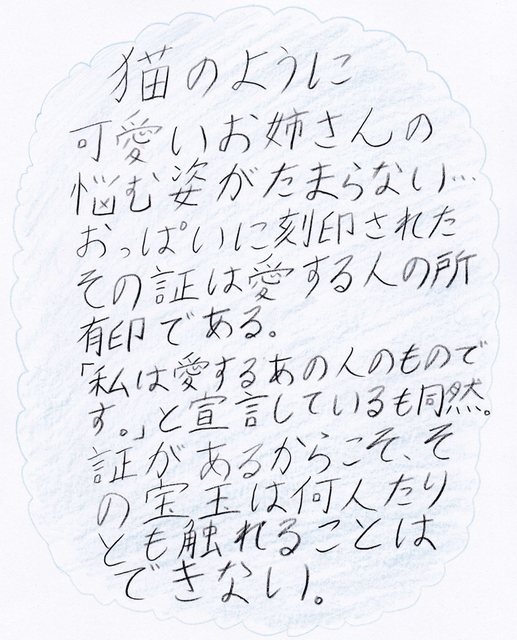 猫のように
可愛いお姉さんの
悩む姿がたまらない…
おっぱいに刻印された
その証は愛する人の所
有印である。
「私は愛するあの人のもので
す。」と宣言しているも同然。
証があるからこそ、そ
の宝玉は何人たり
とも触れることは
できない。